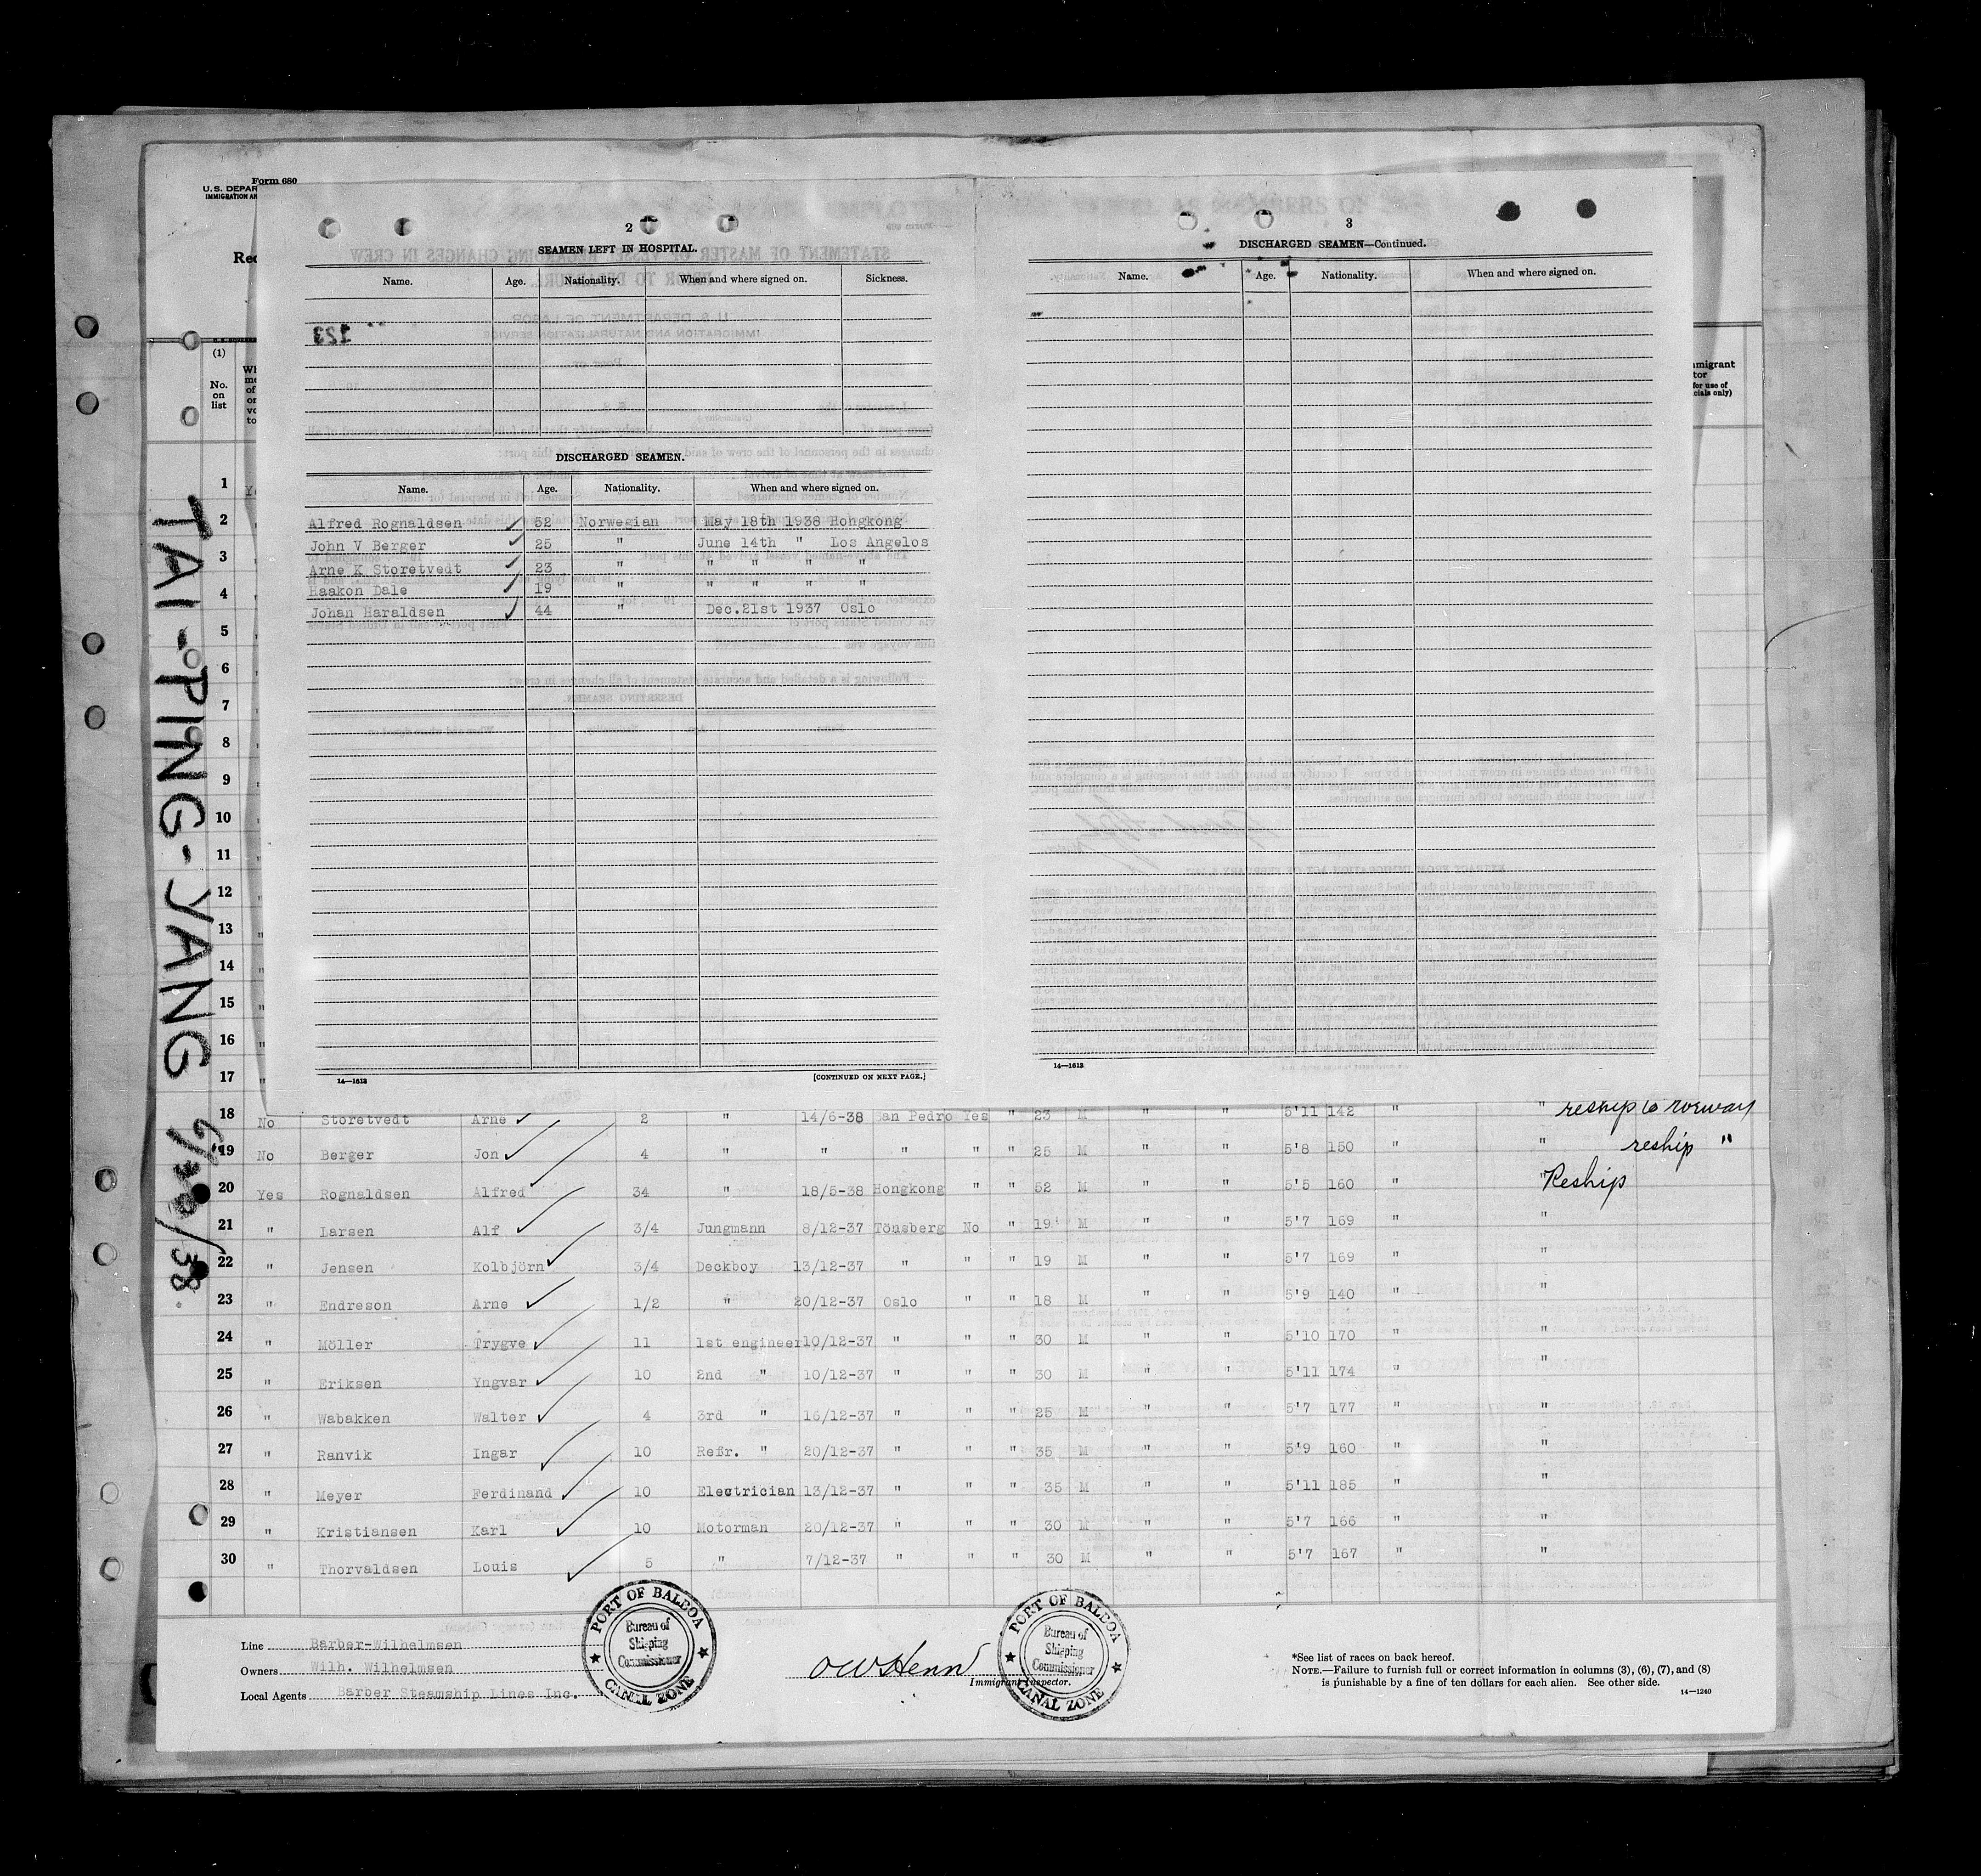 Form 680
U. S. DEPAR
IMMIGRATION AN
Rec
2
SEAMEN LEFT IN HOSPITAL.
Name. Age. Nationality. When and where signed on. Sickness.
DISCHARGED SEAMEN.
Name. Age. Nationality. When and where signed on.
Alfred Rognaldsen 52 Norwegian May 18th 1938 Hongkong
John V Berger 25 " June 14th " Los Angelos
Arne K Storetvedt 23 " " " " "
Haakon Dale 19 " " " " "
Johan Haraldsen 44 " Dec.21st 1937 Oslo
14—1613 [CONTINUED ON NEXT PAGE.]
3
DISCHARGED SEAMEN—Continued.
Name. Age. Nationality. When and where signed on.
14—1613
(1)
No.
on
list
mmigrant
tor
for use of
cials only)
1
2
3
4
5
6
7
8
9
10
11
12
13
14
15
16
17
18 No Storetvedt Arne 2 " 14/6-38 San Pedro Yes " 23 M " " 5'11 142 " " reship to Norway
19 No Berger Jon 4 " " " " " 25 M " " 5'8 150 " " reship "
20 Yes Rognaldsen Alfred 34 " 18/5-38 Hongkong " " 52 M " " 5'5 160 " " Reship
21 " Larsen Alf 3/4 Jungmann 8/12-37 Tönsberg No " 19 M " " 5'7 169 " "
22 " Jensen Kolbjörn 3/4 Deckboy 13/12-37 " " " 19 M " " 5'7 169 " "
23 " Endreson Arne 1/2 " 20/12-37 Oslo " " 18 M " " 5'9 140 " "
24 " Möller Trygve 11 1st engineer 10/12-37 " " " 30 M " " 5'10 170 " "
25 " Eriksen Yngvar 10 2nd " 10/12-37 " " " 30 M " " 5'11 174 " "
26 " Wabakken Walter 4 3rd " 16/12-37 " " " 25 M " " 5'7 177 " "
27 " Ranvik Ingar 10 Refr. " 20/12-37 " " " 35 M " " 5'9 160 " "
28 " Meyer Ferdinand 10 Electrician 13/12-37 " " " 35 M " " 5'11 185 " "
29 " Kristiansen Karl 10 Motorman 20/12-37 " " " 30 M " " 5'7 166 " "
30 " Thorvaldsen Louis 5 " 7/12-37 " " " 30 M " " 5'7 167 " "
TAI-PING-YANG 6/30/38
Line Barber-Wilhelmsen
Owners Wilh. Wilhelmsen
Local Agents Barber Steamship Lines Inc.
PORT OF BALBOA
Bureau of
Shipping
Commissioner
CANAL ZONE
OW Henn
Immigrant Inspector.
PORT OF BALBOA
Bureau of
Shipping
Commissioner
CANAL ZONE
*See list of races on back hereof.
NOTE.—Failure to furnish full or correct information in columns (3), (6), (7), and (8)
is punishable by a fine of ten dollars for each alien. See other side.
14—1240